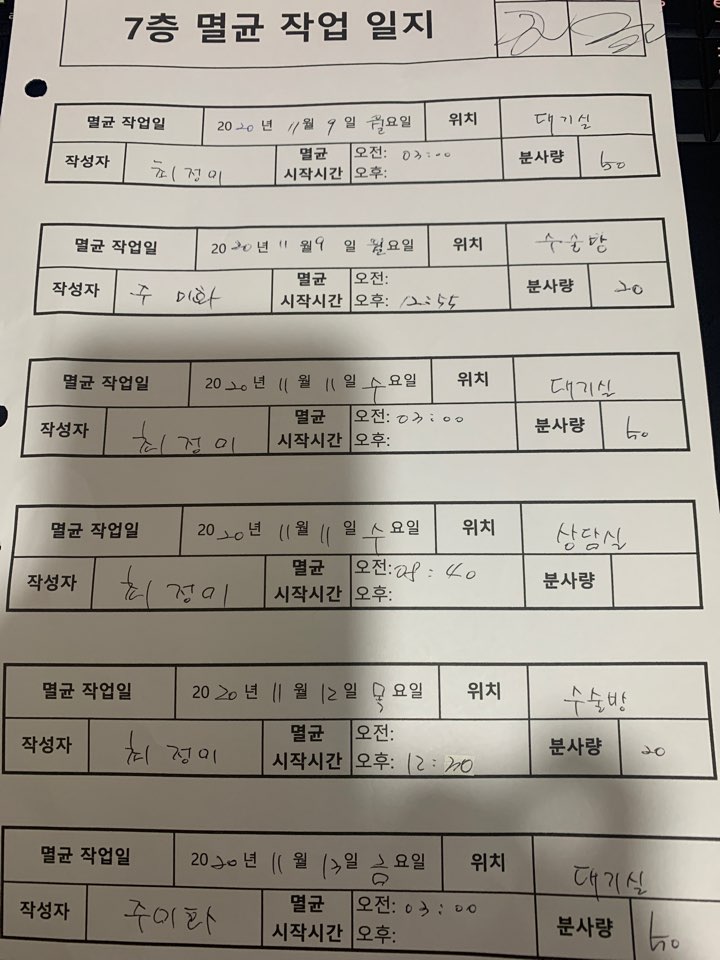 7층 멸균 작업 일지
멸균 작업일 2020년 11월 9일 월요일 위치 대기실
작성자 최정미 멸균 시작시간 오전: 03:00 오후: 분사량 50
멸균 작업일 2020년 11월 9일 월요일 위치 수술방
작성자 주미화 멸균 시작시간 오전: 오후: 12:55 분사량 20
멸균 작업일 2020년 11월 11일 수요일 위치 대기실
작성자 최정미 멸균 시작시간 오전: 03:00 오후: 분사량 50
멸균 작업일 2020년 11월 11일 수요일 위치 상담실
작성자 최정미 멸균 시작시간 오전: 08:40 오후: 분사량
멸균 작업일 2020년 11월 12일 목요일 위치 수술방
작성자 최정미 멸균 시작시간 오전: 오후: 12:30 분사량 20
멸균 작업일 2020년 11월 13일 금요일 위치 대기실
작성자 주미화 멸균 시작시간 오전: 03:00 오후: 분사량 50